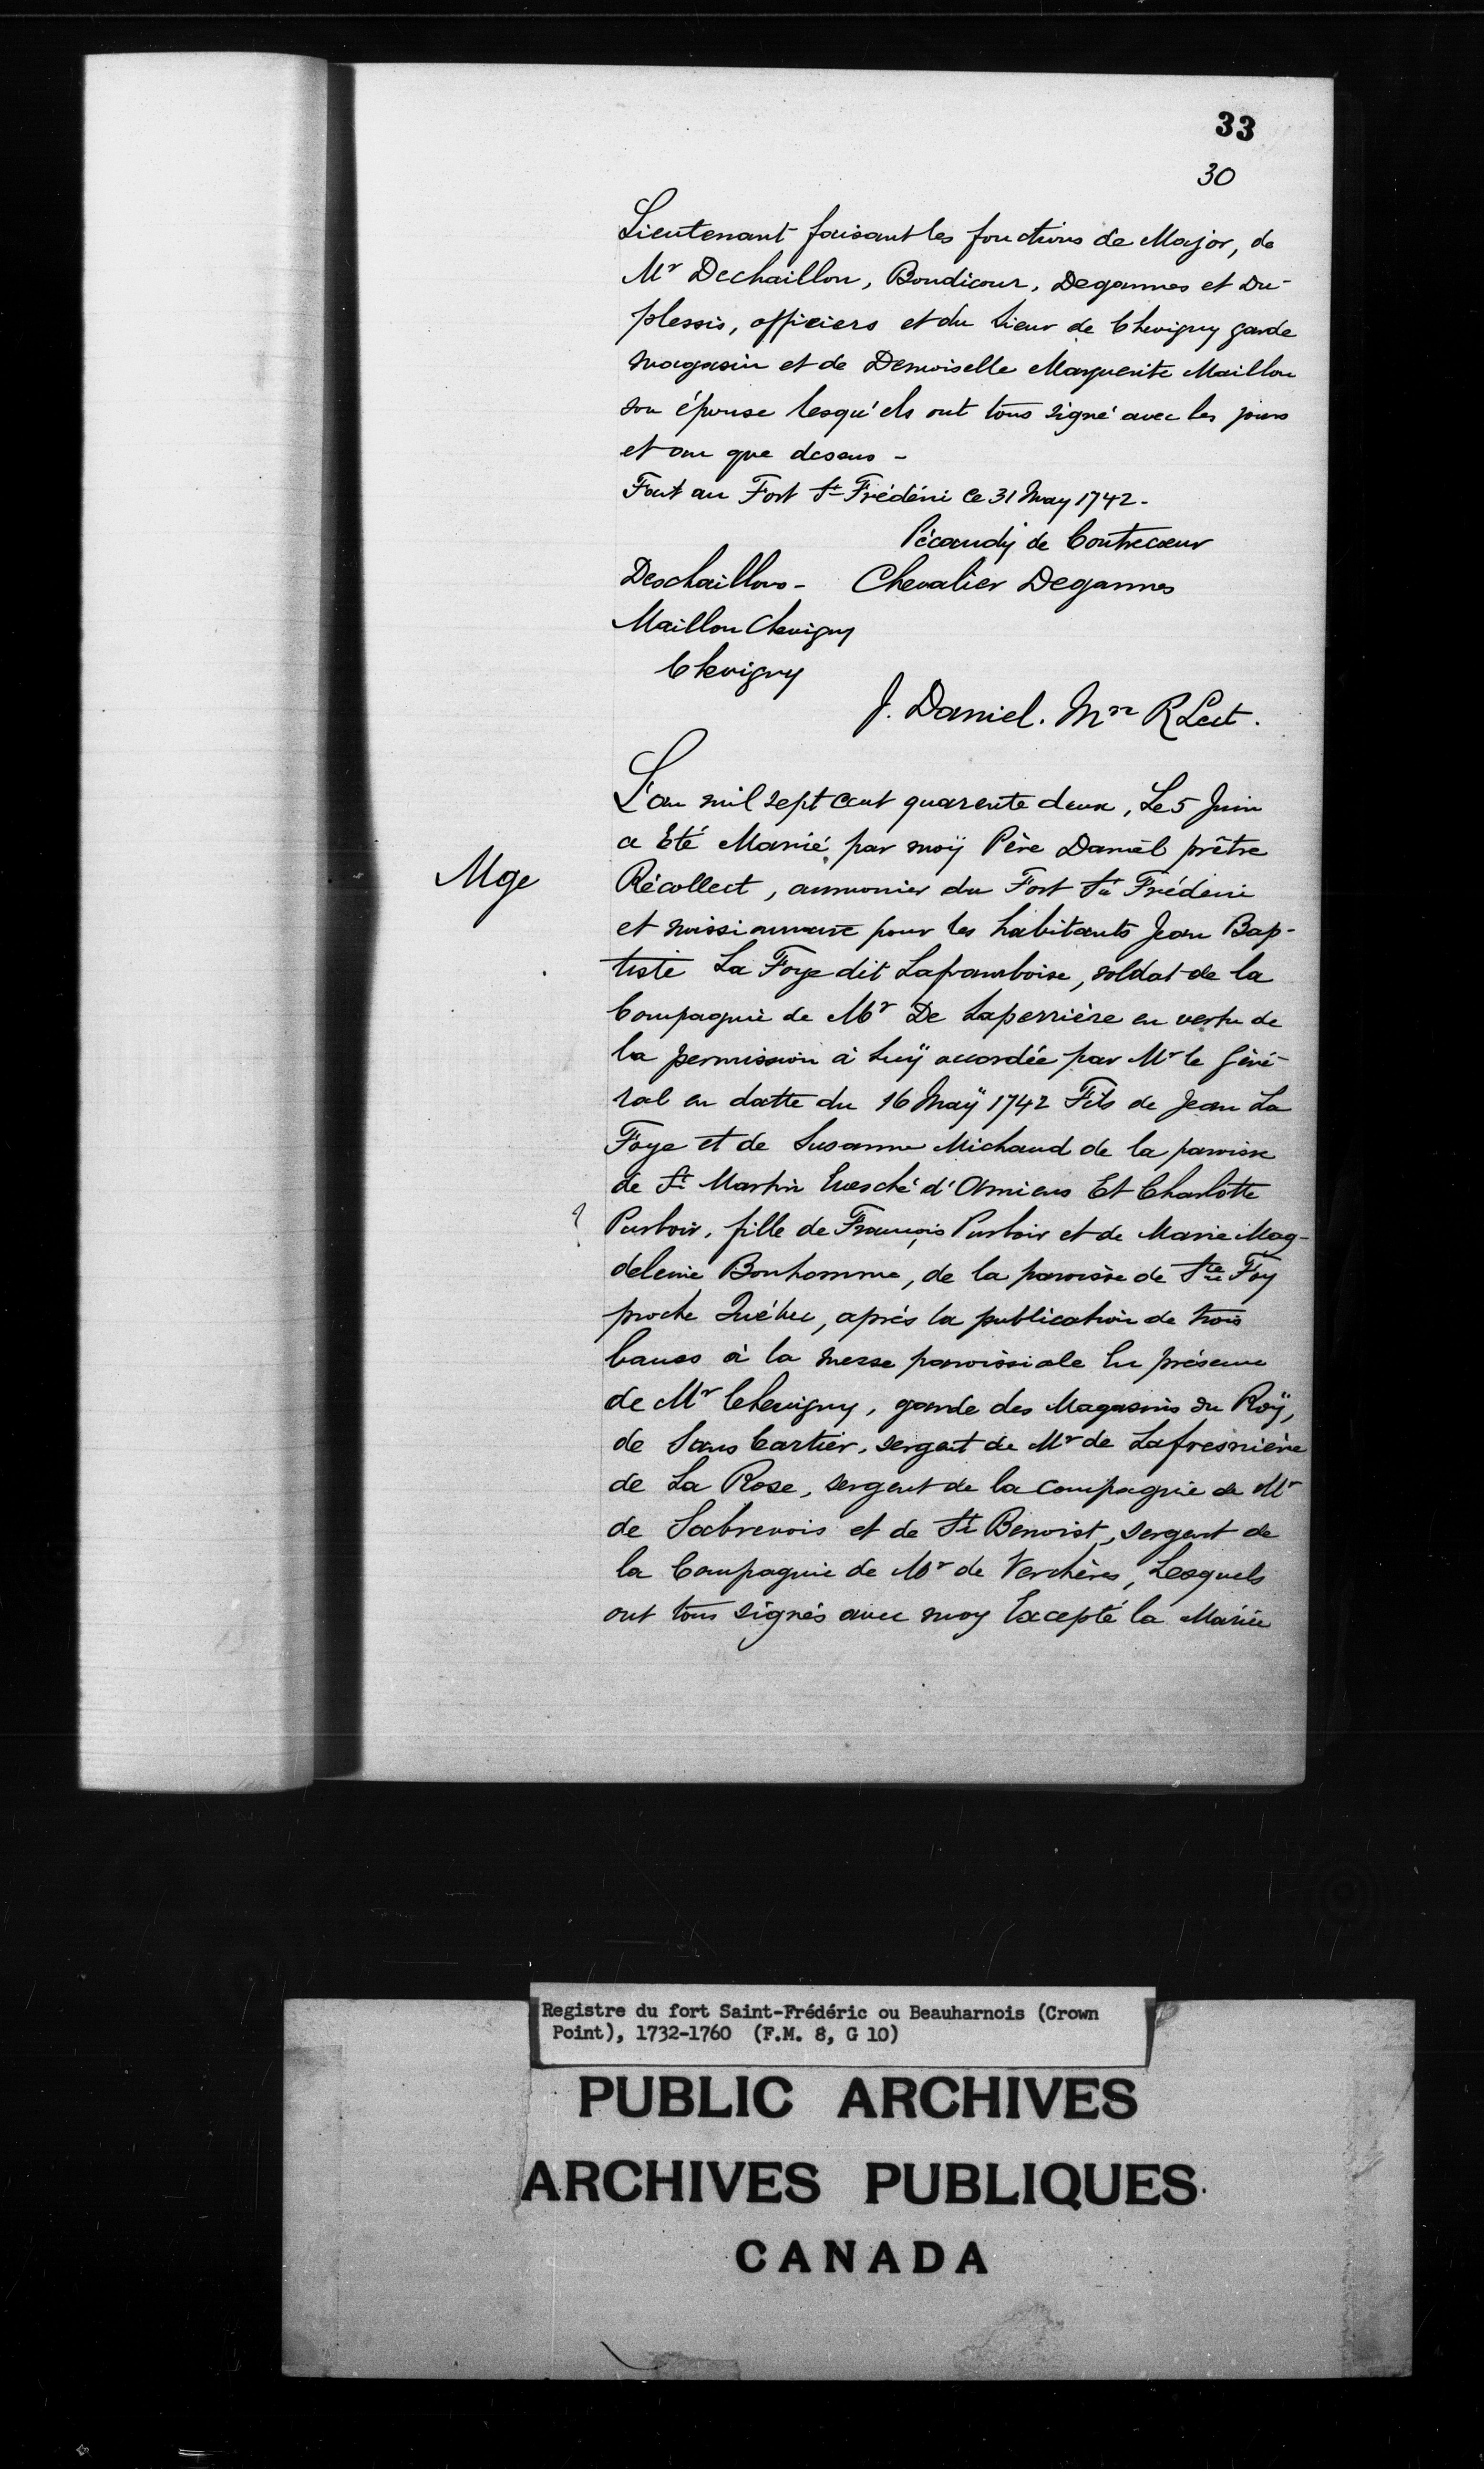 33
30
Lieutenant faisant les fonctions de Major, de
Mr Dechaillon, Boudicour, Degannes et Du-
plessis, officiers et du Sieur de Chevigny garde
magasin et de Demoiselle Marguerite Maillou
son épouse lesqu'els ont tous signé avec les jours
et an que dessus -
Fait au Fort St Frédéric ce 31 May 1742.
Pécaudy de Contrecoeur
Deschaillons - Chevalier Degannes
Maillou Chevigny
Chevigny
J. Daniel. Mre R Lect.
L'an mil sept cent quarente deux, Le 5 Juin
a Eté Marié par moÿ Père Daniel prêtre
Mge
Récollect, aumonier du Fort St Frédéric
et missionnaire pour les habitants Jean Bap-
tiste La Foye dit Laframboise, soldat de la
Compagnie de Mr De Laperrière en vertu de
la permission à luÿ accordée par Mr le Géné-
ral en datte du 16 Maÿ 1742 Fils de Jean La
Foye et de Susanne Michaud de la paroisse
de St Martin Evesché d'Amiens Et Charlotte
? Purloir, fille de François Purloir et de Marie Mag-
deleine Bonhomme, de la paroisse de Ste Foy
proche Québec, après la publication de trois
bancs à la messe paroissiale En présence
de Mr Chevigny, garde des Magasins du Roÿ,
de Sans Cartier, sergent de Mr de Lafresnière
de La Rose, sergent de la compagnie de Mr
de Sabrevois et de St Benoist, sergent de
la Compagnie de Mr de Verchères, Lesquels
ont tous signés avec moy Excepté la Mariée
Registre du fort Saint-Frédéric ou Beauharnois (Crown
Point), 1732-1760 (F.M. 8, G 10)
PUBLIC ARCHIVES
ARCHIVES PUBLIQUES
CANADA